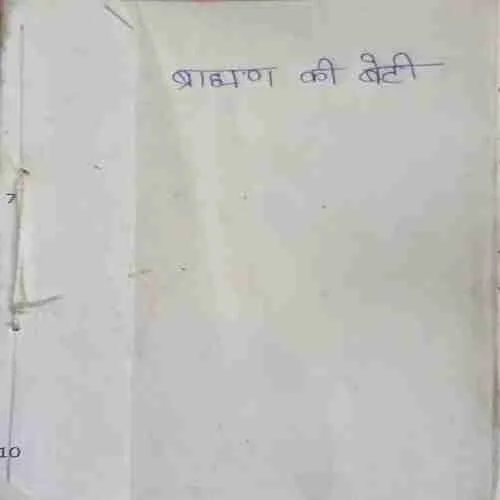 ब्राह्मण की बेटी
7
10